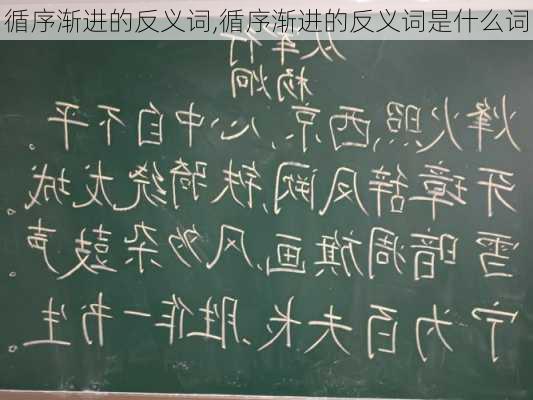 循序渐进的反义词,循序渐进的反义词是什么词
从军行
杨炯
烽火照西京,心中自不平。
牙璋辞凤阙,铁骑绕龙城。
雪暗凋旗画,风多杂鼓声。
宁为百夫长,胜作一书生。